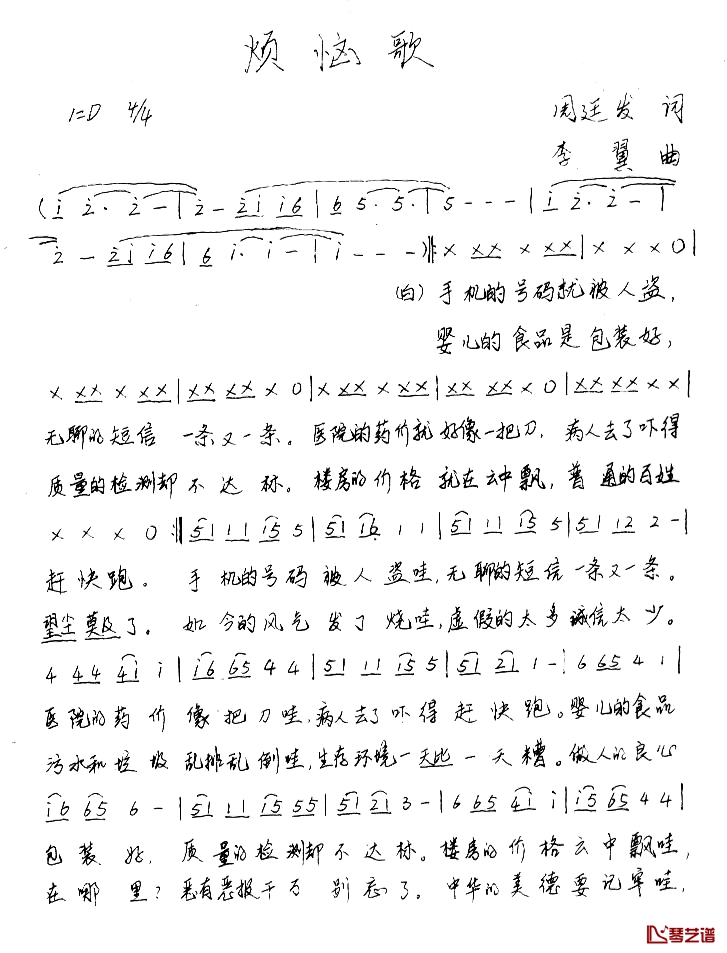 烦恼歌
1=D 4/4
周廷发 词
李翼 曲
(i 2· 2 - | 2 - 2i i6 | 6 5· 5· | 5 - - - | i 2· 2 - |
2 - 2i i6 | 6 i· i - | i - - - )‖: x xx x xx | x x x 0 |
(白) 手机的号码就被人盗,
婴儿的食品是包装好,
x xx x xx | xx xx x 0 | x xx x xx | xx xx x 0 | xx xx x x |
无聊的短信 一条又一条。医院的药价就好像一把刀, 病人去了吓得
质量的检测却不达标。楼房的价格就在云中飘, 普通的百姓
x x x 0 :‖: 51 11 i5 5 | 51 i6 1 1 | 51 11 i5 5 | 51 12 2 - |
赶快跑。 手机的号码被人盗哇, 无聊的短信一条又一条。
望尘莫及了。 如今的风气发了烧哇, 虚假的太多诚信太少。
4 44 4i i | i6 65 4 4 | 51 11 i5 5 | 51 21 1 - | 6 65 4 1 |
医院的药价像把刀哇, 病人去了吓得赶快跑。婴儿的食品
污水和垃圾乱排乱倒哇, 生存环境一天比一天糟。做人的良心
i6 65 6 - | 51 11 i5 55 | 51 21 3 - | 6 65 4i i | i5 65 4 4 |
包装好, 质量的检测却不达标。楼房的价格云中飘哇,
在哪里? 恶有恶报千万别忘了。中华的美德要记牢哇,
琴艺谱